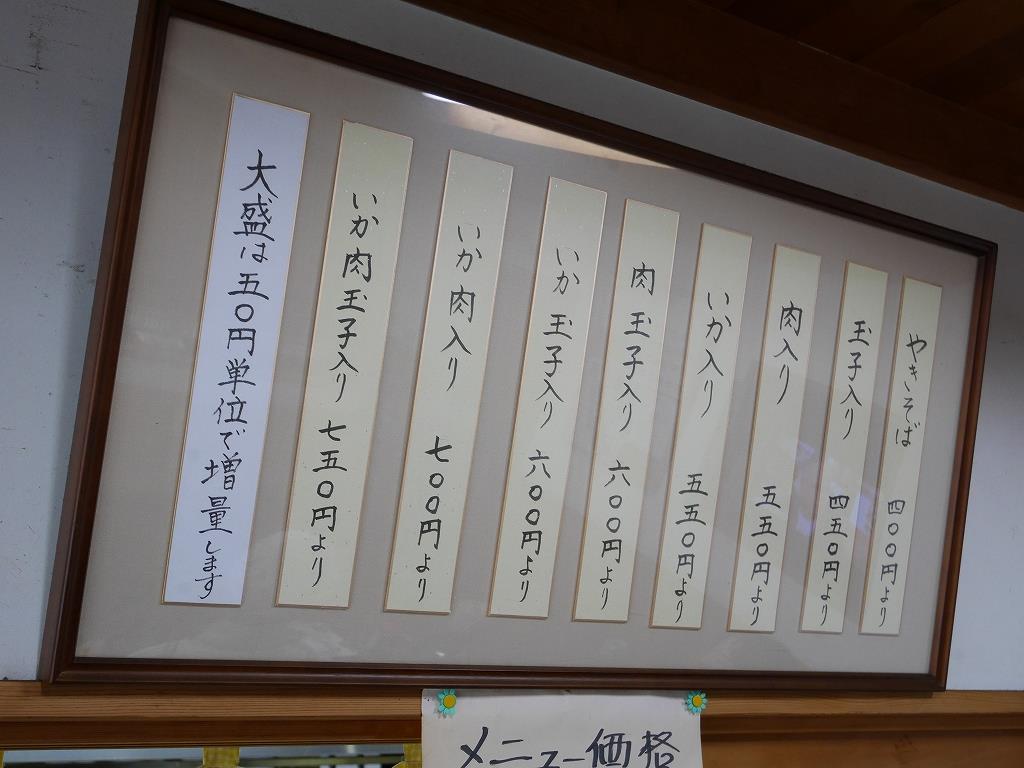 やきそば 四〇〇円より
玉子入り 四五〇円より
肉入り 五五〇円より
いか入り 五五〇円より
肉玉子入り 六〇〇円より
いか玉子入り 六〇〇円より
いか肉入り 七〇〇円より
いか肉玉子入り 七五〇円より
大盛は五〇円単位で増量します
メニュー価格